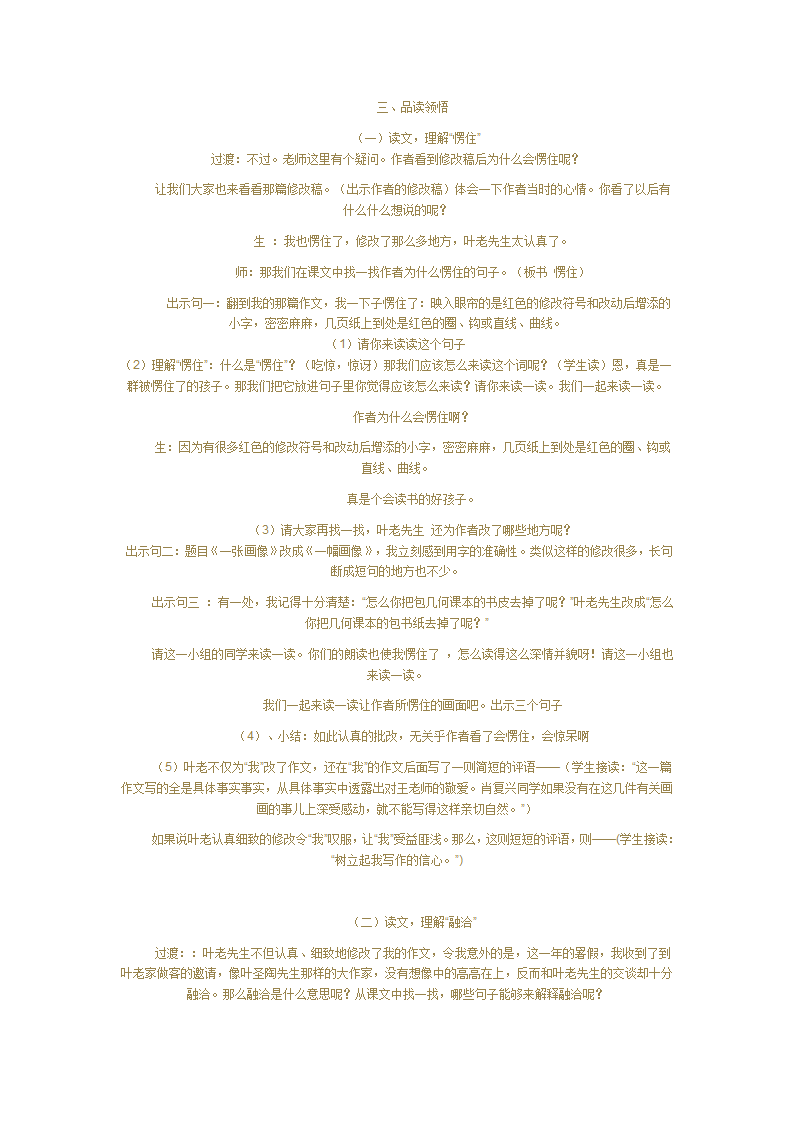 三、品读领悟
（一）读文，理解“愣住”
过渡：不过。老师这里有个疑问。作者看到修改稿后为什么会愣住呢？
让我们大家也来看看那篇修改稿。（出示作者的修改稿）体会一下作者当时的心情。你看了以后有
什么什么想说的呢？
生 ：我也愣住了，修改了那么多地方，叶老先生太认真了。
师：那我们在课文中找一找作者为什么愣住的句子。（板书 愣住）
出示句一：翻到我的那篇作文，我一下子愣住了：映入眼帘的是红色的修改符号和改动后增添的
小字，密密麻麻，几页纸上到处是红色的圈、钩或直线、曲线。
（1）请你来读读这个句子
（2）理解“愣住”：什么是“愣住”？（吃惊，惊讶）那我们应该怎么来读这个词呢？（学生读）恩，真是一
群被愣住了的孩子。那我们把它放进句子里你觉得应该怎么来读？请你来读一读。我们一起来读一读。
作者为什么会愣住啊？
生：因为有很多红色的修改符号和改动后增添的小字，密密麻麻，几页纸上到处是红色的圈、钩或
直线、曲线。
真是个会读书的好孩子。
（3）请大家再找一找，叶老先生 还为作者改了哪些地方呢？
出示句二：题目《一张画像》改成《一幅画像》，我立刻感到用字的准确性。类似这样的修改很多，长句
断成短句的地方也不少。
出示句三 ：有一处，我记得十分清楚：“怎么你把包几何课本的书皮去掉了呢？”叶老先生改成“怎么
你把几何课本的包书纸去掉了呢？”
请这一小组的同学来读一读。你们的朗读也使我愣住了 ，怎么读得这么深情并貌呀！请这一小组也
来读一读。
我们一起来读一读让作者所愣住的画面吧。出示三个句子
（4）、小结：如此认真的批改，无关乎作者看了会愣住，会惊呆啊
（5）叶老不仅为“我”改了作文，还在“我”的作文后面写了一则简短的评语——（学生接读：“这一篇
作文写的全是具体事实事实，从具体事实中透露出对王老师的敬爱。肖复兴同学如果没有在这几件有关画
画的事儿上深受感动，就不能写得这样亲切自然。”）
如果说叶老认真细致的修改令“我”叹服，让“我”受益匪浅。那么，这则短短的评语，则——(学生接读：
“树立起我写作的信心。”)
（二）读文，理解“融洽”
过渡：：叶老先生不但认真、细致地修改了我的作文，令我意外的是，这一年的署假，我收到了到
叶老家做客的邀请，像叶圣陶先生那样的大作家，没有想像中的高高在上，反而和叶老先生的交谈却十分
融洽。那么融洽是什么意思呢？从课文中找一找，哪些句子能够来解释融洽呢？